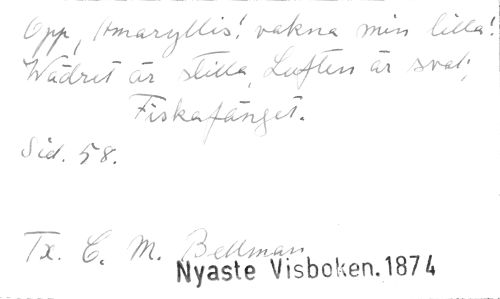 Opp, Amaryllis! vakna min lilla!
Wädret är stilla, Luften är sval;
Fiskafänget.
Sid. 58.
Tx. C. M. Bellman
Nyaste Visboken. 1874